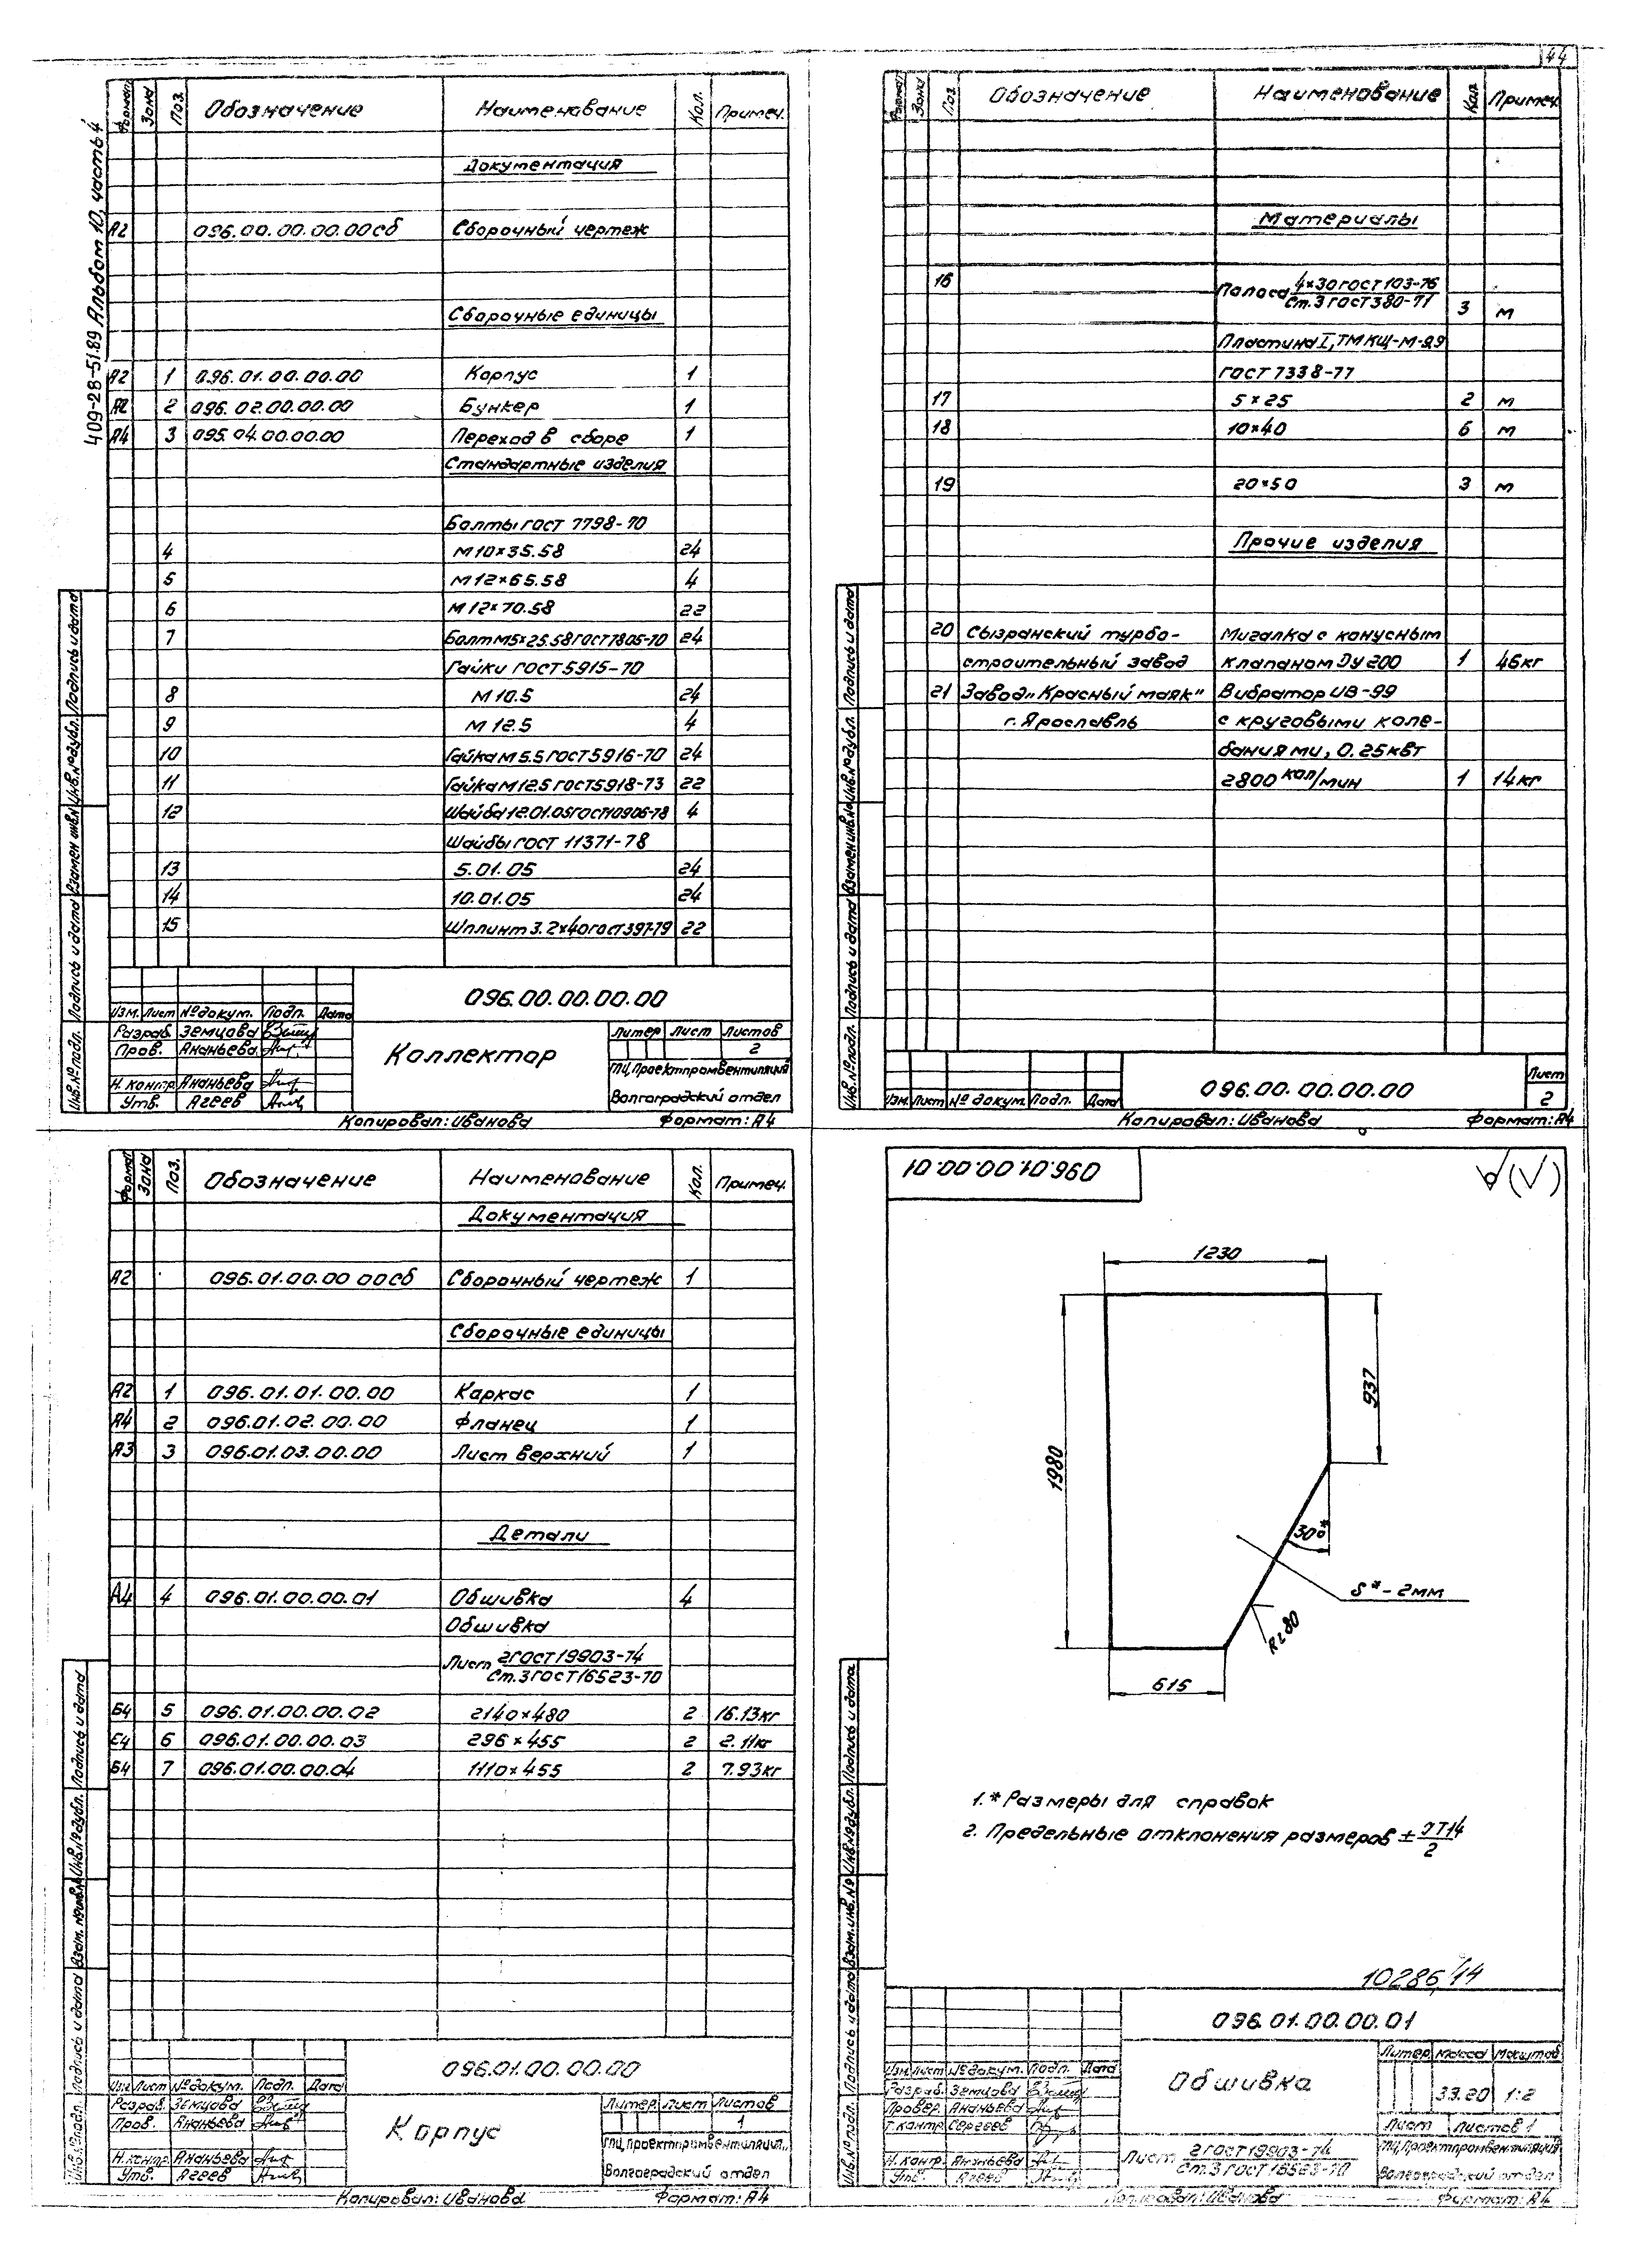 44
409-28-51.89 Альбом 10, часть 4
Формат Зона Поз. Обозначение Наименование Кол. Примеч.
Документация
А2 096.00.00.00.00сб Сборочный чертеж
Сборочные единицы
А2 1 096.01.00.00.00 Корпус 1
А2 2 096.02.00.00.00 Бункер 1
А4 3 095.04.00.00.00 Переход в сборе 1
Стандартные изделия
Болты ГОСТ 7798-70
4 М10×35.58 24
5 М12×65.58 4
6 М12×70.58 22
7 Болт М5×25.58 ГОСТ 7805-70 24
Гайки ГОСТ 5915-70
8 М10.5 24
9 М12.5 4
10 Гайка М5.5 ГОСТ 5916-70 24
11 Гайка М12.5 ГОСТ 5918-73 22
12 Шайба 12.01.05 ГОСТ 10906-78 4
Шайбы ГОСТ 11371-78
13 5.01.05 24
14 10.01.05 24
15 Шплинт 3.2×40 ГОСТ 397-79 22
Инв.№подл. Подпись и дата Взамен инв.№ Инв.№дубл. Подпись и дата
096.00.00.00.00
Изм. Лист №докум. Подп. Дата
Разраб. Земцова
Пров. Ананьева
Н.контр. Ананьева
Утв. Агеев
Коллектор
Литер Лист Листов
2
ГПИ „Проектпромвентиляция"
Волгоградский отдел
Копировал: Иванова Формат: А4
Формат Зона Поз. Обозначение Наименование Кол. Примеч.
Материалы
16 Полоса 4×30 ГОСТ 103-76
Ст.3 ГОСТ 380-71 3 м
Пластина I, ТМКЩ-М-
ГОСТ 7338-77
17 5×25 2 м
18 10×40 6 м
19 20×50 3 м
Прочие изделия
20 Сызранский турбо- Мигалка с конусным
строительный завод клапаном Ду 200 1 46кг
21 Завод „Красный маяк" Вибратор ИВ-99
г. Ярославль с круговыми коле-
баниями, 0.25квт
2800 кол/мин 1 14кг
Инв.№подл. Подпись и дата Взамен инв.№ Инв.№дубл. Подпись и дата
Изм. Лист №докум. Подп. Дата
096.00.00.00.00
Лист
2
Копировал: Иванова Формат: А4
Формат Зона Поз. Обозначение Наименование Кол. Примеч.
Документация
А2 096.01.00.00 00сб Сборочный чертеж 1
Сборочные единицы
А2 1 096.01.01.00.00 Каркас 1
А4 2 096.01.02.00.00 Фланец 1
А3 3 096.01.03.00.00 Лист верхний 1
Детали
А4 4 096.01.00.00.01 Обшивка 4
Обшивка
Лист 2 ГОСТ 19903-74
Ст.3 ГОСТ 16523-70
Б4 5 096.01.00.00.02 2140×480 2 16.13кг
Б4 6 096.01.00.00.03 296×455 2 2.11кг
Б4 7 096.01.00.00.04 1110×455 2 7.93кг
Инв.№подл. Подпись и дата Взам. инв.№ Инв.№дубл. Подпись и дата
096.01.00.00.00
Изм. Лист №докум. Подп. Дата
Разраб. Земцова
Пров. Ананьева
Н.контр. Ананьева
Утв. Агеев
Корпус
Литер. Лист Листов
1
ГПИ „Проектпромвентиляция"
Волгоградский отдел
Копировал: Иванова Формат: А4
096.01.00.00.01
1230
1980
937
30°*
S*-2мм
615
1.* Размеры для справок
2. Предельные отклонения размеров ± JT14/2
10286/14
Инв.№подл. Подпись и дата Взам.инв.№ Инв.№дубл. Подпись и дата
096.01.00.00.01
Изм. Лист №докум. Подп. Дата
Разраб. Земцова
Провер. Ананьева
Т.контр. Сергеев
Н.контр. Ананьева
Утв. Агеев
Обшивка
Литер. Масса Масштаб
33.20 1:2
Лист Листов 1
Лист 2 ГОСТ 19903-74
Ст.3 ГОСТ 16523-70
ГПИ „Проектпромвентиляция"
Волгоградский отдел
Копировал: Иванова Формат: А4